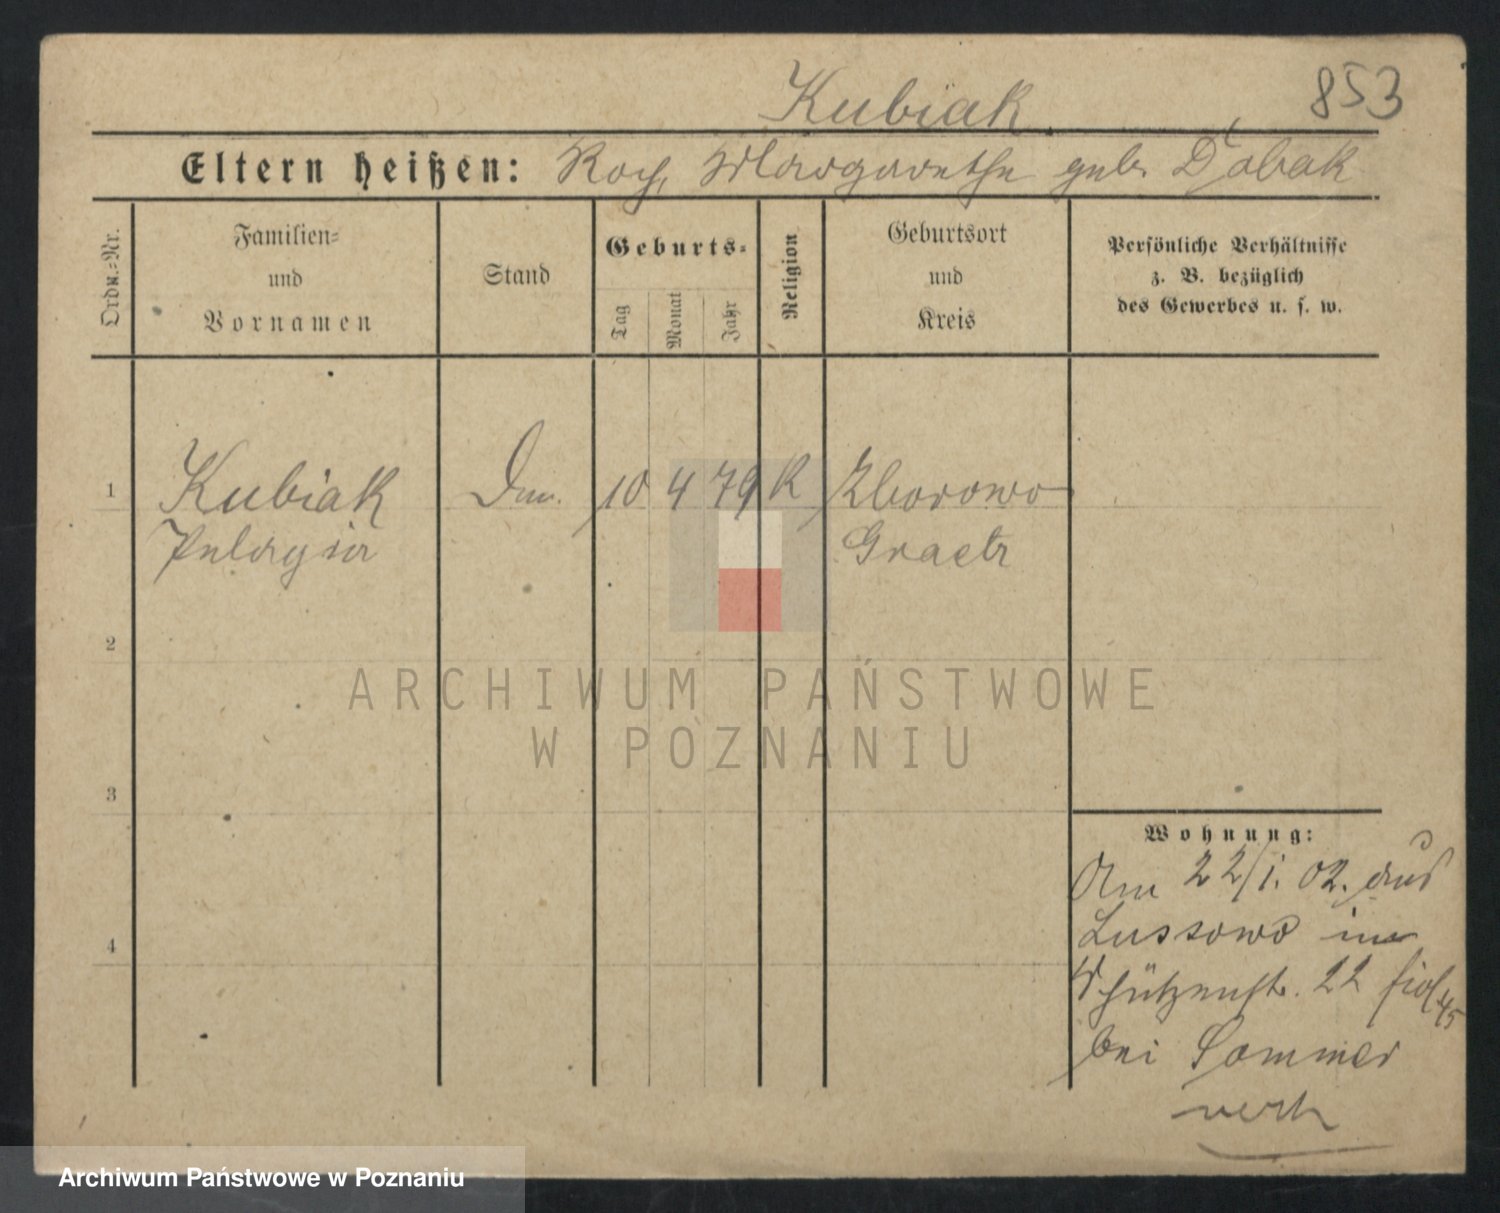 Kubiak
853
Eltern heißen: Roch, Margarethe geb. Dobak
Ordn.-Nr.
Familien-
und
Vornamen
Stand
Geburts-
Tag
Monat
Jahr
Religion
Geburtsort
und
Kreis
Persönliche Verhältnisse
z. B. bezüglich
des Gewerbes u. s. w.
1 Kubiak 10 4 79 K Zborowo
Pelagia Graetz
2
3
4
Wohnung:
Am 22/1. 02. aus
Lussowo in
Schützenstr. 22
bei Sommer
ARCHIWUM PAŃSTWOWE
W POZNANIU
Archiwum Państwowe w Poznaniu